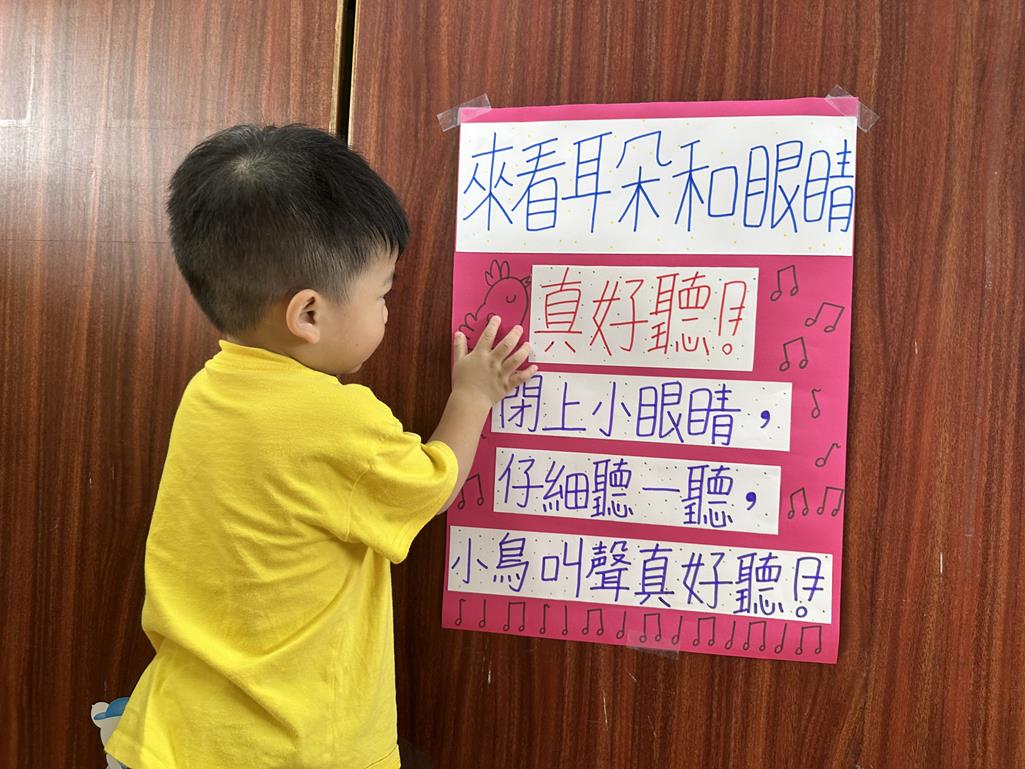 來看耳朵和眼睛
真好聽!
閉上小眼睛,
仔細聽一聽,
小鳥叫聲真好聽!